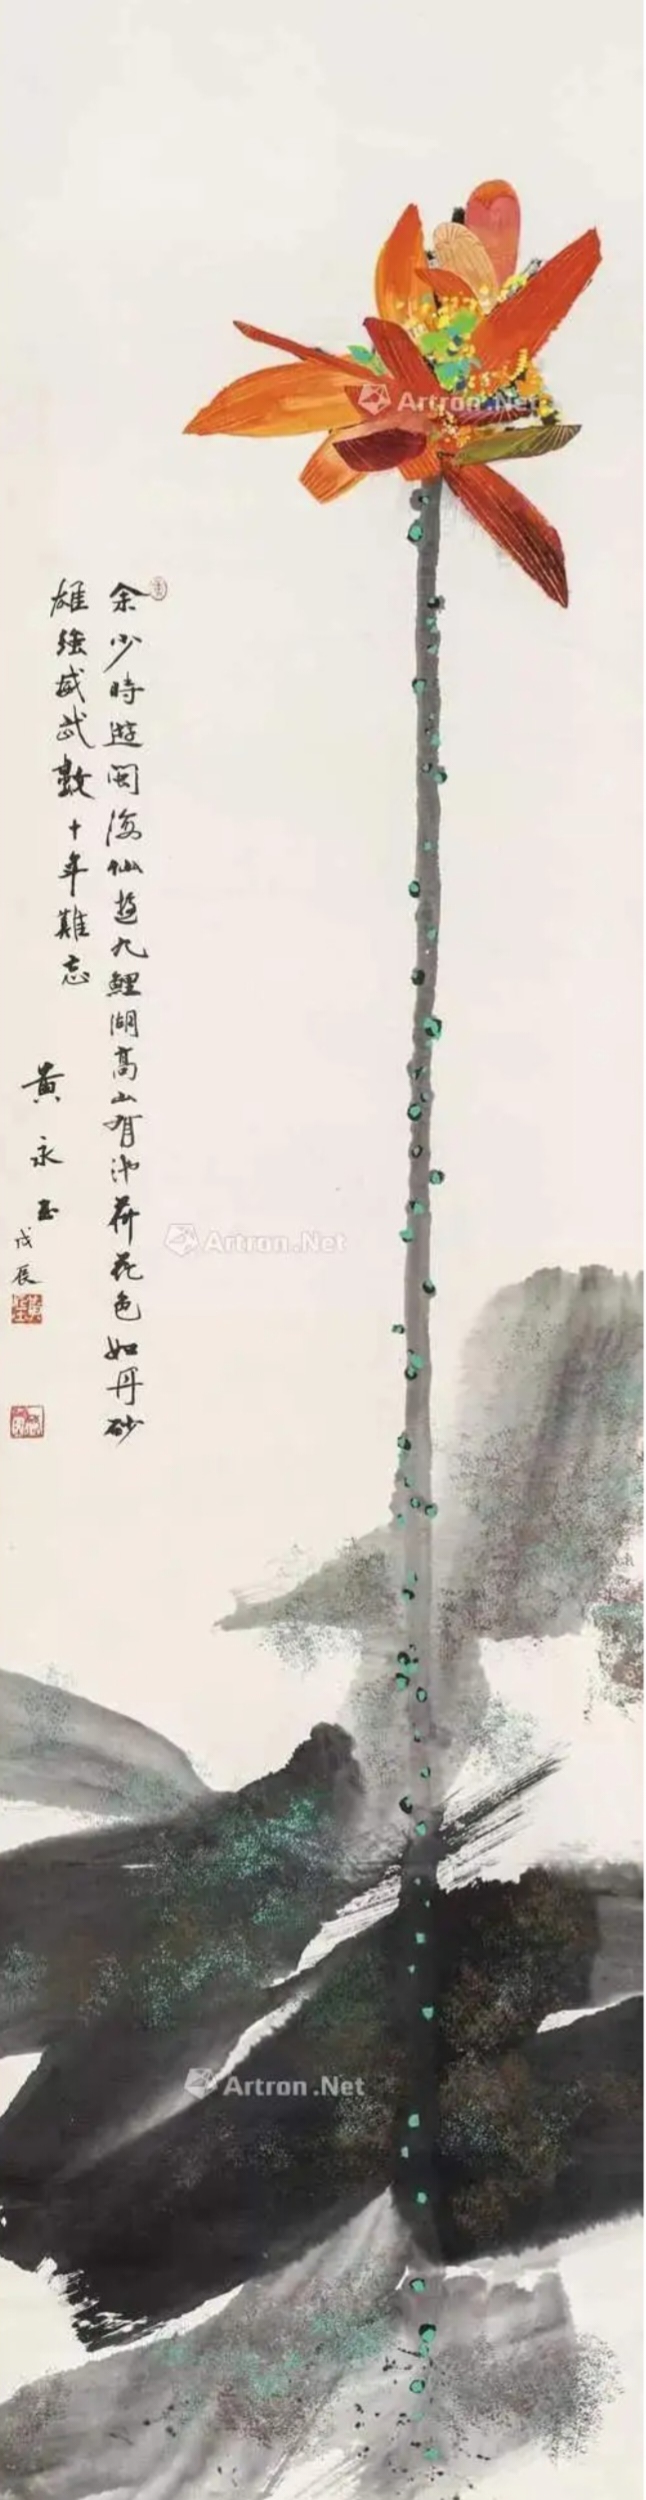 余少時遊閩海仙遊九鯉湖高山有池荷花色如丹砂
雄強威武數十年難忘
黃永玉
戊辰
Artron.Net
Artron.Net
Artron.Net